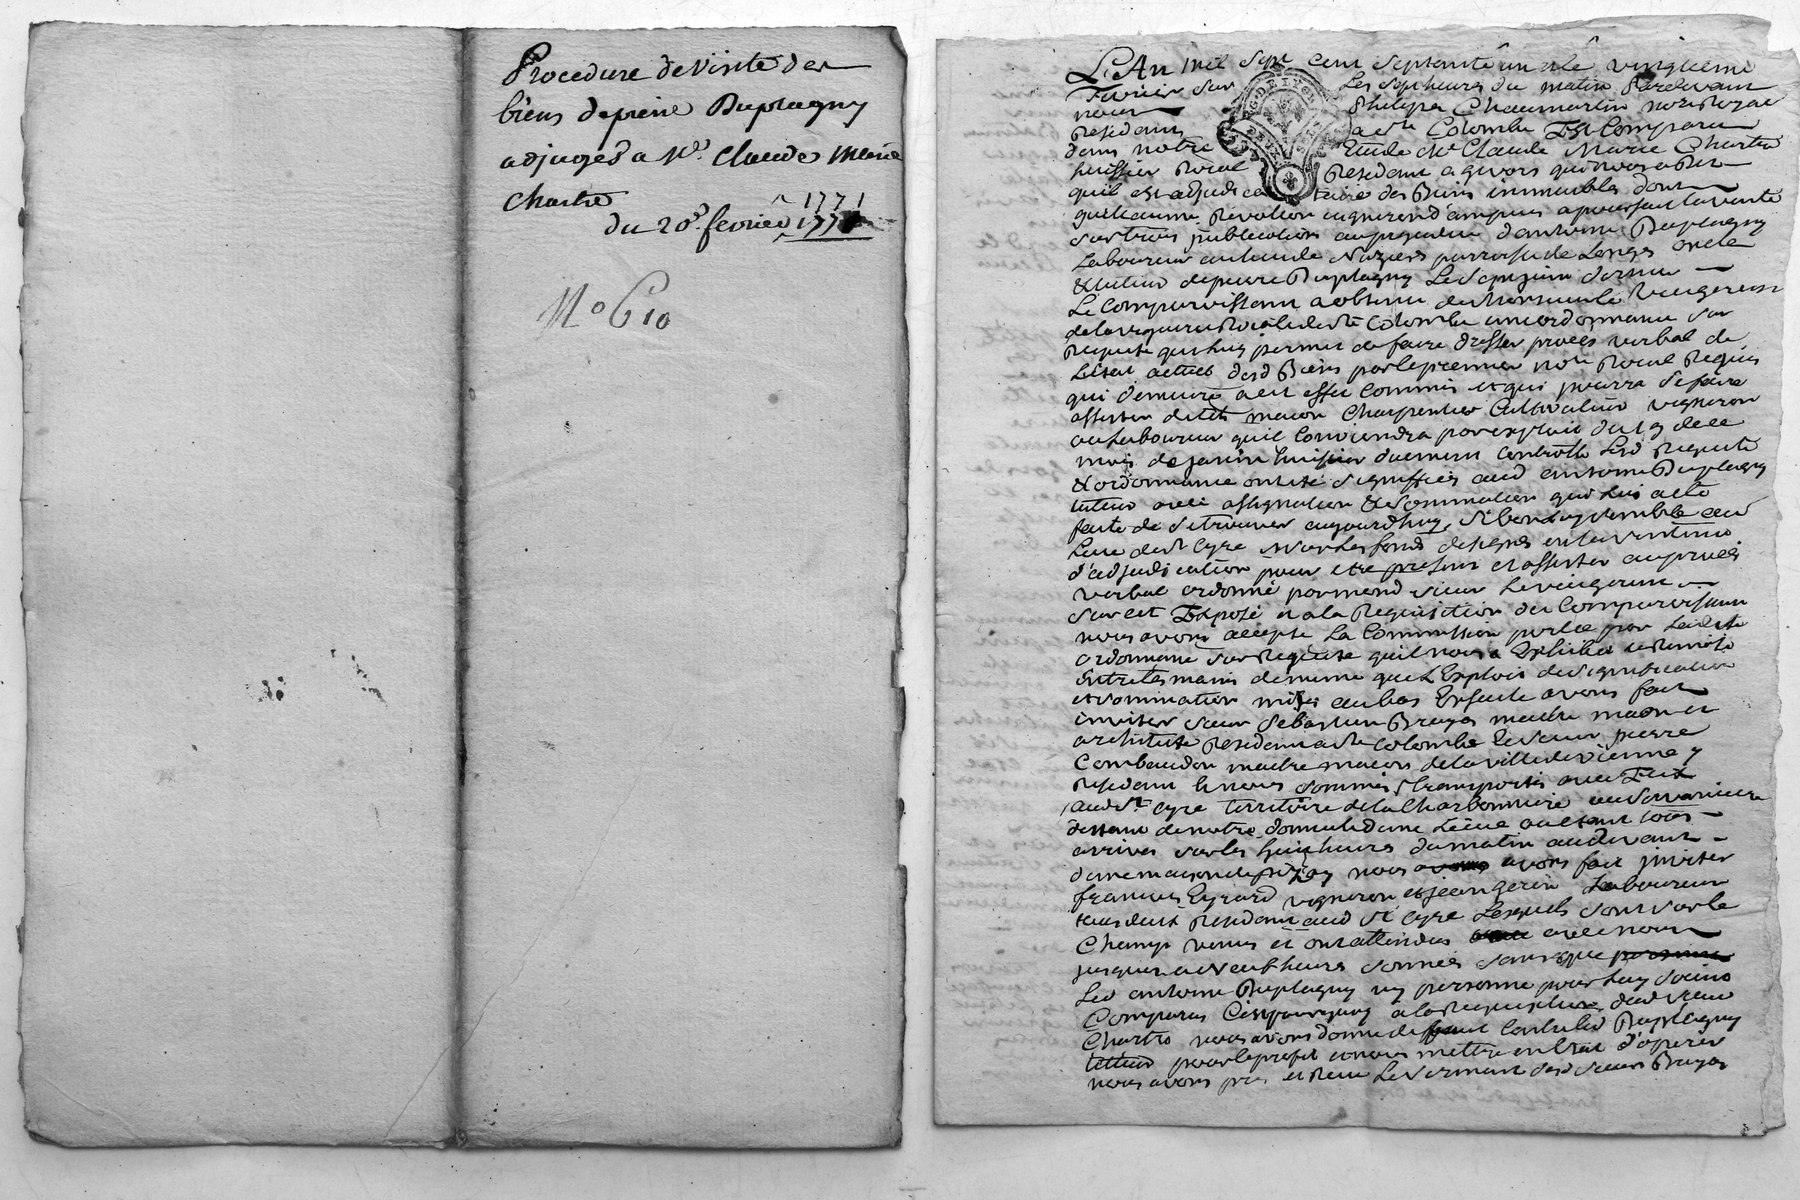 Procedure de visite des
biens de pierre Duplagny
adjugés a Mr. Claude Marie
Chartre
1771
du 20e. fevrier 1771
No 610
L'An mil sept cent septante un et le vingtieme
fevrier sur les sept heures du matin Pardevant
nous Philipe Chaumartin nore Royal
Residant a Ste Colombe Est Comparu
dans notre Etude Mr Claude Marie Chartre
huissier Royal Residant a givors qui nous a dit
G. DE LYON
quil est adjudicataire des Biens immeubles dont
guilleaume Revollon vigneron d'ampuis a poursuit la vente
sur trois publications au prejudice d'antoine Duplagny
Laboureur au lieu de Nuzieres parroisse de Longes oncle
& tuteur de pierre Duplagny
Le Comparaissant a obtenu de Monsieur le Viguerin
de la viguerie Roiale de Ste Colombe une ordonnance sur
Requete qui luy permet de faire dresser procés verbal de
L'etat actuel desd Biens par le premier nore Roial Requis
qui demeure a cet effet Commis et qui pourra se faire
assister de tels macon Charpentier Cultivateur vigneron
ou Laboureur quil Conviendra par exploit du 19 de ce
mois de janin huissier duement Controllé Lesd Requete
& ordonnance ont eté signiffiées aud antoine Duplagny
tuteur avec assignation & sommation qui luy a eté
faite de se trouver aujourdhuy, si bon luy semble au
Lieu de St Cyre sur les fonds designés en la
d'adjudication pour etre present et assister au procés
verbal ordonné par mond sieur Le viguerin
Sur cet Exposé et a la Requisition du Comparaissant
nous avons accepté La Commission portée par Ladite
ordonnance sur Requete quil nous a Exhibée et Remise
Entre les mains de meme que L'Exploit de signification
et sommation mises au bas Ensuite avons fait
inviter sieur Sebastien Bruyas maitre macon et
architecte Residant a Ste Colombe & sieur pierre
Combaudon maitre macon de la ville de vienne y
Residant & nous sommes transportés avec Eux
aud St Cyre Territoire de la Charbonniere
distant de notre domicile d'une Lieüe ou etant tous
arrives sur les huit heures du matin audevant
d'une maison nous avons fait inviter
francois Eyrard vigneron et jean gerin Laboureur
tous deux Residant aud St Cyre Lesquels sont sur le
Champ venus et ont attendus avec nous
jusques a neuf heures sonnées sans que
Led antoine Duplagny ny personne pour luy soient
Comparus C'est pourquoy a la requisition dud sieur
Chartre nous avons donné deffaut Contre led Duplagny
tuteur pour le profit et nous mettre en Etat d'operer
nous avons pris et Recu Le serment desd sieurs Bruyas